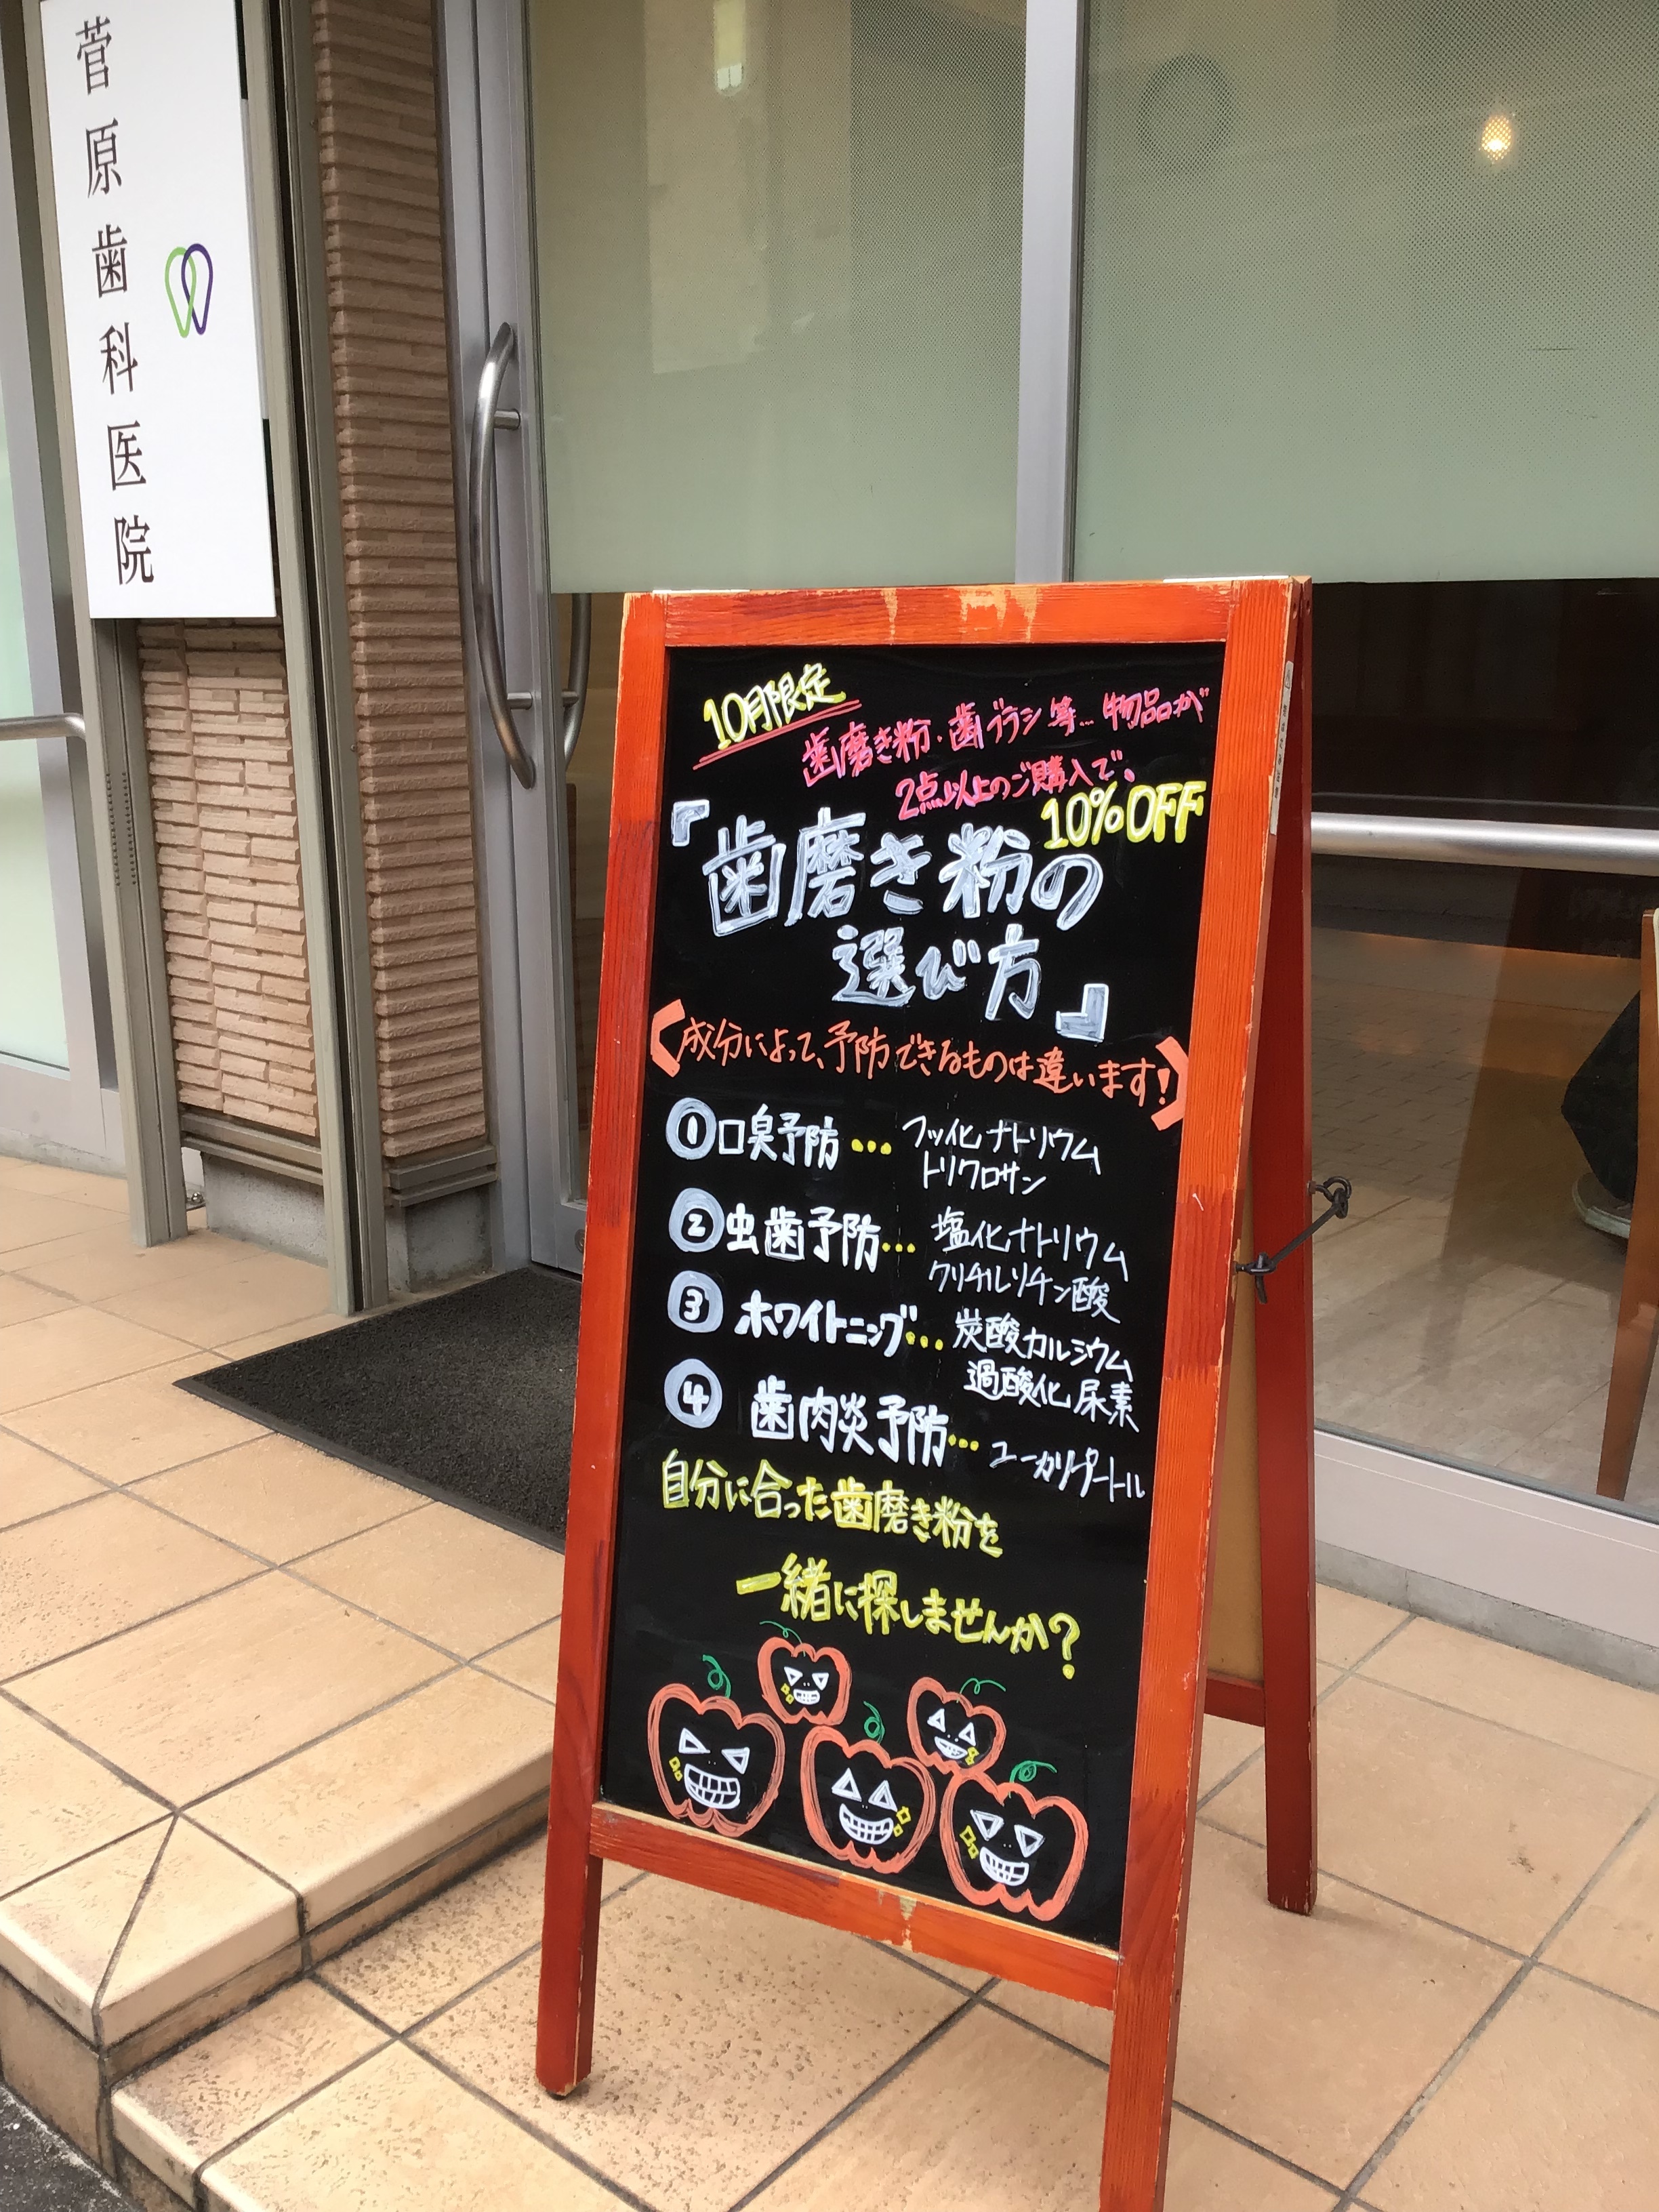 菅原歯科医院
10月限定
歯磨き粉・歯ブラシ等…物品が
2点以上のご購入で、
10%OFF
『歯磨き粉の
選び方』
〈成分によって、予防できるものは違います!〉
①口臭予防…フッ化ナトリウム
トリクロサン
②虫歯予防…塩化ナトリウム
グリチルリチン酸
③ホワイトニング…炭酸カルシウム
過酸化尿素
④歯肉炎予防…ユーカリプトール
自分に合った歯磨き粉を
一緒に探しませんか?